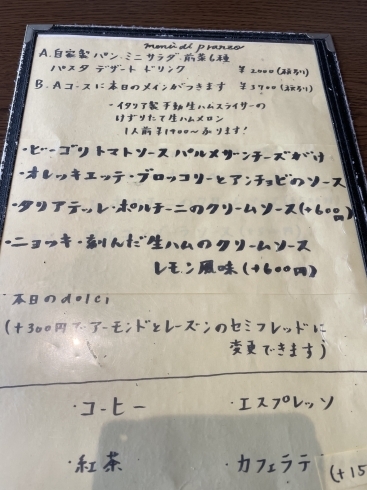 menù di pranzo
A. 自家製パン ミニサラダ 前菜6種
パスタ デザート ドリンク ¥2000(税別)
B. Aコースに本日のメインがつきます ¥3700(税別)
・イタリア製 手動生ハムスライサーの
けずりたて生ハムメロン
1人前¥1900〜あります!
・ビーゴリ トマトソース パルメザンチーズがけ
・オレッキエッテ・ブロッコリーとアンチョビのソース
・タリアテッレ・ポルチーニのクリームソース(+600円)
・ニョッキ・刻んだ生ハムのクリームソース
レモン風味(+600円)
本日のdolci
(+300円でアーモンドとレーズンのセミフレッドに
変更できます)
・コーヒー ・エスプレッソ
・紅茶 ・カフェラテ (+15